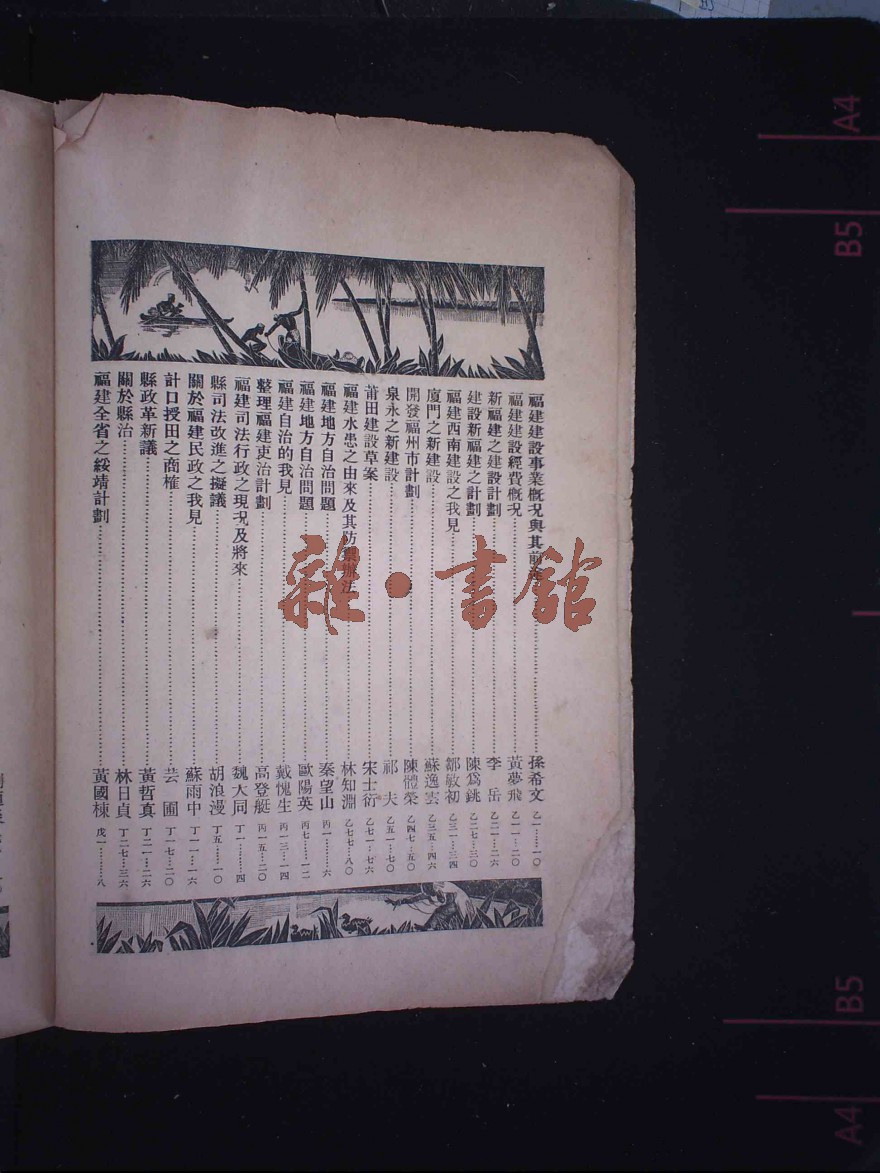 福建建設事業概況與其前途……孫希文 乙一……一〇
福建建設經費概況……黃夢飛 乙一一…二〇
新福建之建設計劃……李岳 乙二一…二六
建設新福建之計劃……陳爲銚 乙二七…三〇
福建西南建設之我見……鄒敏初 乙三一…三四
廈門之新建設……蘇逸雲 乙三五…四六
開發福州市計劃……陳體榮 乙四七…五〇
泉永之新建設……祁夫 乙五一…七〇
莆田建設草案……宋士衍 乙七一…七六
福建水患之由來及其防禦辦法……林知淵 乙七七…八〇
福建地方自治問題……秦望山 丙一………六
福建地方自治問題……歐陽英 丙七……一二
福建自治的我見……戴愧生 丙一三…一四
整理福建吏治計劃……高登艇 丙一五…二〇
福建司法行政之現況及將來……魏大同 丁一………四
縣司法改進之擬議……胡浪漫 丁五……一〇
關於福建民政之我見……蘇雨中 丁一一…一六
計口授田之商榷……芸圃 丁一七…二〇
縣政革新議……黃哲真 丁二一…二六
關於縣治……林日貞 丁二七…三六
福建全省之綏靖計劃……黃國棟 戊一………八
雜·書館
A4
B5
B5
A4